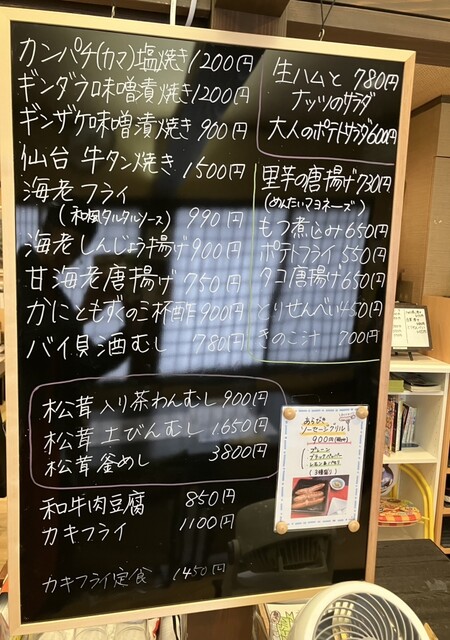 カンパチ(カマ)塩焼き 1200円
ギンダラ味噌漬焼き 1200円
ギンザケ味噌漬焼き 900円
仙台 牛タン焼き 1500円
海老フライ
(和風タルタルソース) 990円
海老しんじょう揚げ 900円
甘海老唐揚げ 750円
かにともずくの三杯酢 900円
バイ貝酒むし 780円
生ハムと 780円
ナッツのサラダ
大人のポテトサラダ 600円
里芋の唐揚げ 730円
(めんたいマヨネーズ)
もつ煮込み 650円
ポテトフライ 550円
タコ唐揚げ 650円
とりせんべい 450円
きのこ汁 700円
松茸入り茶わんむし 900円
松茸土びんむし 1,650円
松茸釜めし 3800円
和牛肉豆腐 850円
カキフライ 1100円
カキフライ定食 1450円
あらびき
ソーセージグリル
900円(税込)
プレーン
ブラックペッパー
(3種盛り)